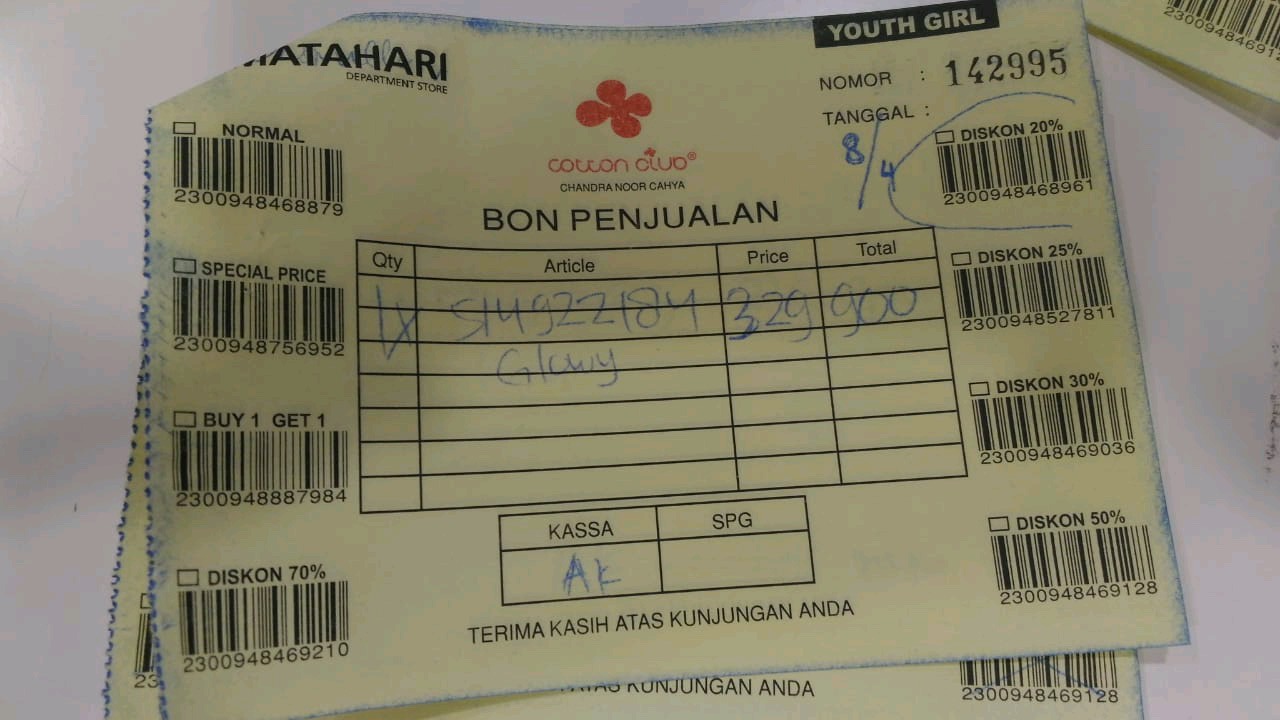 YOUTH GIRL
MATAHARI
DEPARTMENT STORE
NOMOR : 142995
TANGGAL : 8/4
cotton club®
CHANDRA NOOR CAHYA
BON PENJUALAN
NORMAL
2300948468879
SPECIAL PRICE
2300948756952
BUY 1 GET 1
2300948887984
DISKON 70%
2300948469210
Qty Article Price Total
1x 514922184 329 900
Glowy
KASSA SPG
AK
TERIMA KASIH ATAS KUNJUNGAN ANDA
DISKON 20%
2300948468961
DISKON 25%
2300948527811
DISKON 30%
2300948469036
DISKON 50%
2300948469128
23
ATAS KUNJUNGAN ANDA
2300948469128
230094846912